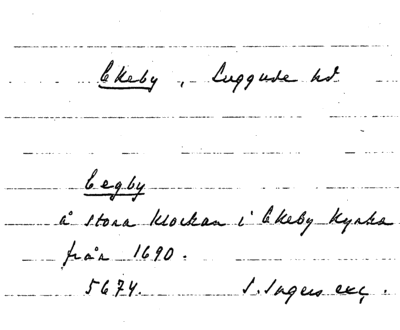 Ekeby, Luggude hd
Eegby
å stora klockan i Ekeby kyrka
från 1690.
5674. S. Ingers exc.